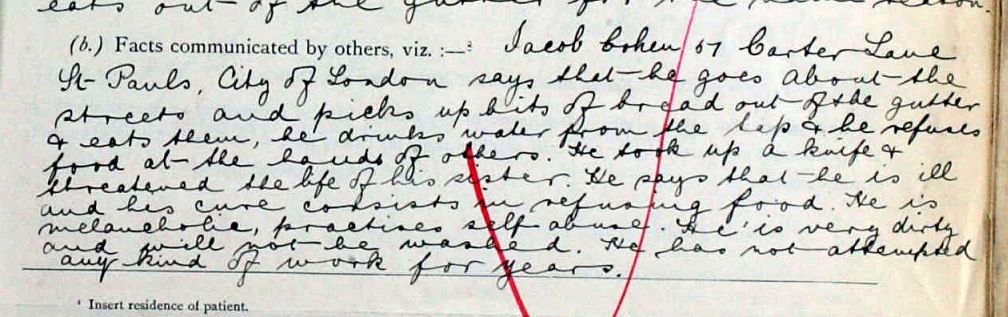 eats out of the gutter for the same reason.
(b.) Facts communicated by others, viz. :—³ Jacob Cohen 57 Carter Lane
St Pauls, City of London says that he goes about the
streets and picks up bits of bread out of the gutter
& eats them, he drinks water from the tap & he refuses
food at the hands of others. He took up a knife &
threatened the life of his sister. He says that he is ill
and his cure consists in refusing food. He is
melancholic, practises self abuse. He is very dirty
and will not be washed. He has not attempted
any kind of work for years.
¹ Insert residence of patient.